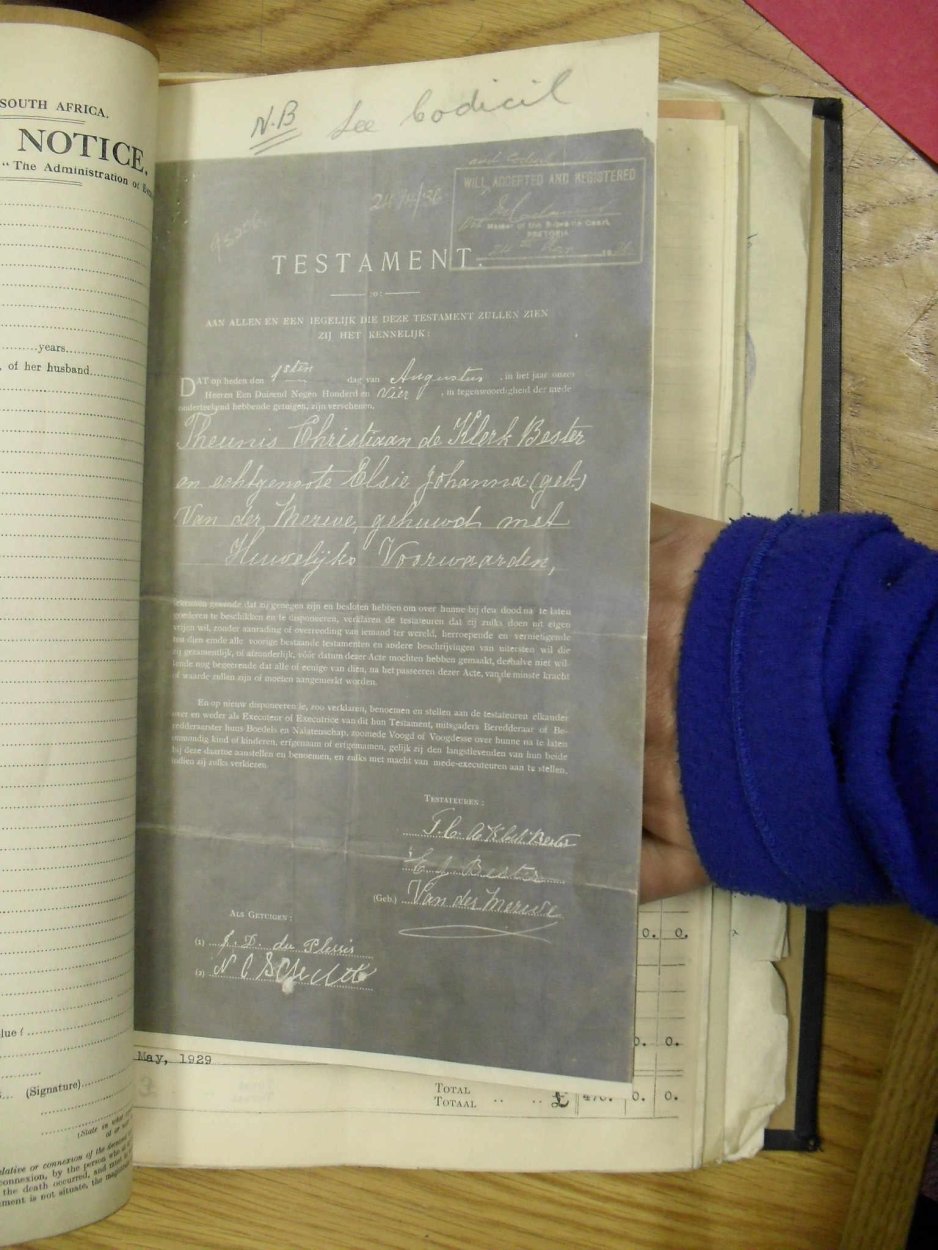 SOUTH AFRICA.
NOTICE.
"The Administration of
years
of her husband
(Signature)
N.B See Codicil
and Codicil
WILL ACCEPTED AND REGISTERED
Master of the Supreme Court,
PRETORIA
2474/36
TESTAMENT.
:o:
AAN ALLEN EN EEN IEGELIJK DIE DEZE TESTAMENT ZULLEN ZIEN
ZIJ HET KENNELIJK:
DAT op heden den 1sten dag van Augustus, in het jaar onzes
Heeren Een Duizend Negen Honderd en Vier, in tegenwoordigheid der mede
onderteekend hebbende getuigen, zijn verschenen,
Theunis Christiaan de Klerk Bester
en echtgenoote Elsie Johanna (geb.)
Van der Merwe, gehuwd met
Huwelijks Voorwaarden,
dewelken gevende dat zij genegen zijn en besloten hebben om over hunne bij den dood na te laten
goederen te beschikken en te disponeeren, verklaren de testateuren dat zij zulks doen uit eigen
vrijen wil, zonder aanrading of overreeding van iemand ter wereld, herroepende en vernietigende
ten dien einde alle voorige bestaande testamenten en andere beschrijvingen van uitersten wil die
zij gezamentlijk, of afzonderlijk, vóór datum dezer Acte mochten hebben gemaakt, deshalve niet wil-
lende nog begeerende dat alle of eenige van dien, na het passeeren dezer Acte, van de minste kracht
of waarde zullen zijn of moeten aangemerkt worden.
En op nieuw disponeerende, zoo verklaren, benoemen en stellen aan de testateuren elkander
over en weder als Executeur of Executrice van dit hun Testament, mitsgaders Beredderaar of Be-
redderaarster huns Boedels en Nalatenschap, zoomede Voogd of Voogdesse over hunne na te laten
onmondig kind of kinderen, erfgenaam of erfgenamen, gelijk zij den langstlevenden van hun beide
bij deze daartoe aanstellen en benoemen, en zulks met macht van mede-executeuren aan te stellen,
indien zij zulks verkiezen.
TESTATEUREN:
T. C. de Klerk Bester
E J Bester
(Geb.) Van der Merwe
ALS GETUIGEN:
(1) J. D. du Plessis
(2) N C
May, 1929
0. 0.
0. 0.
TOTAL
TOTAAL .. .. £ 470. 0. 0.